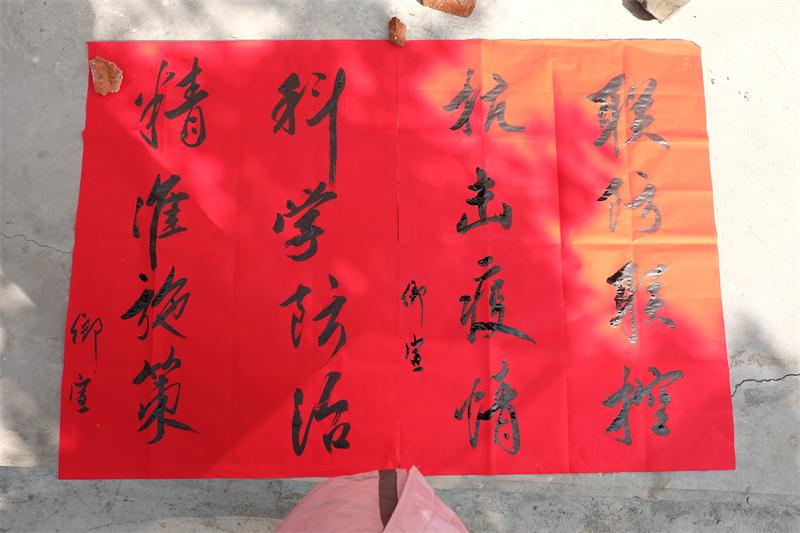 联防联控
抗击疫情
御宣
科学防治
精准施策
御宣